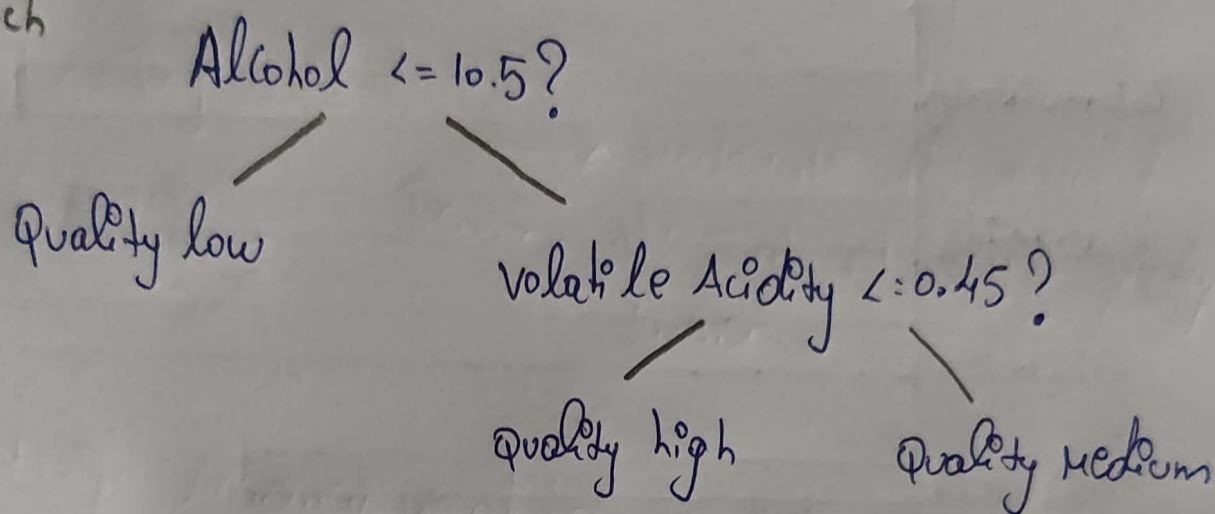 ch
Alcohol <= 10.5?
Quality low
Volatile Acidity <= 0.45?
Quality high
Quality Medium